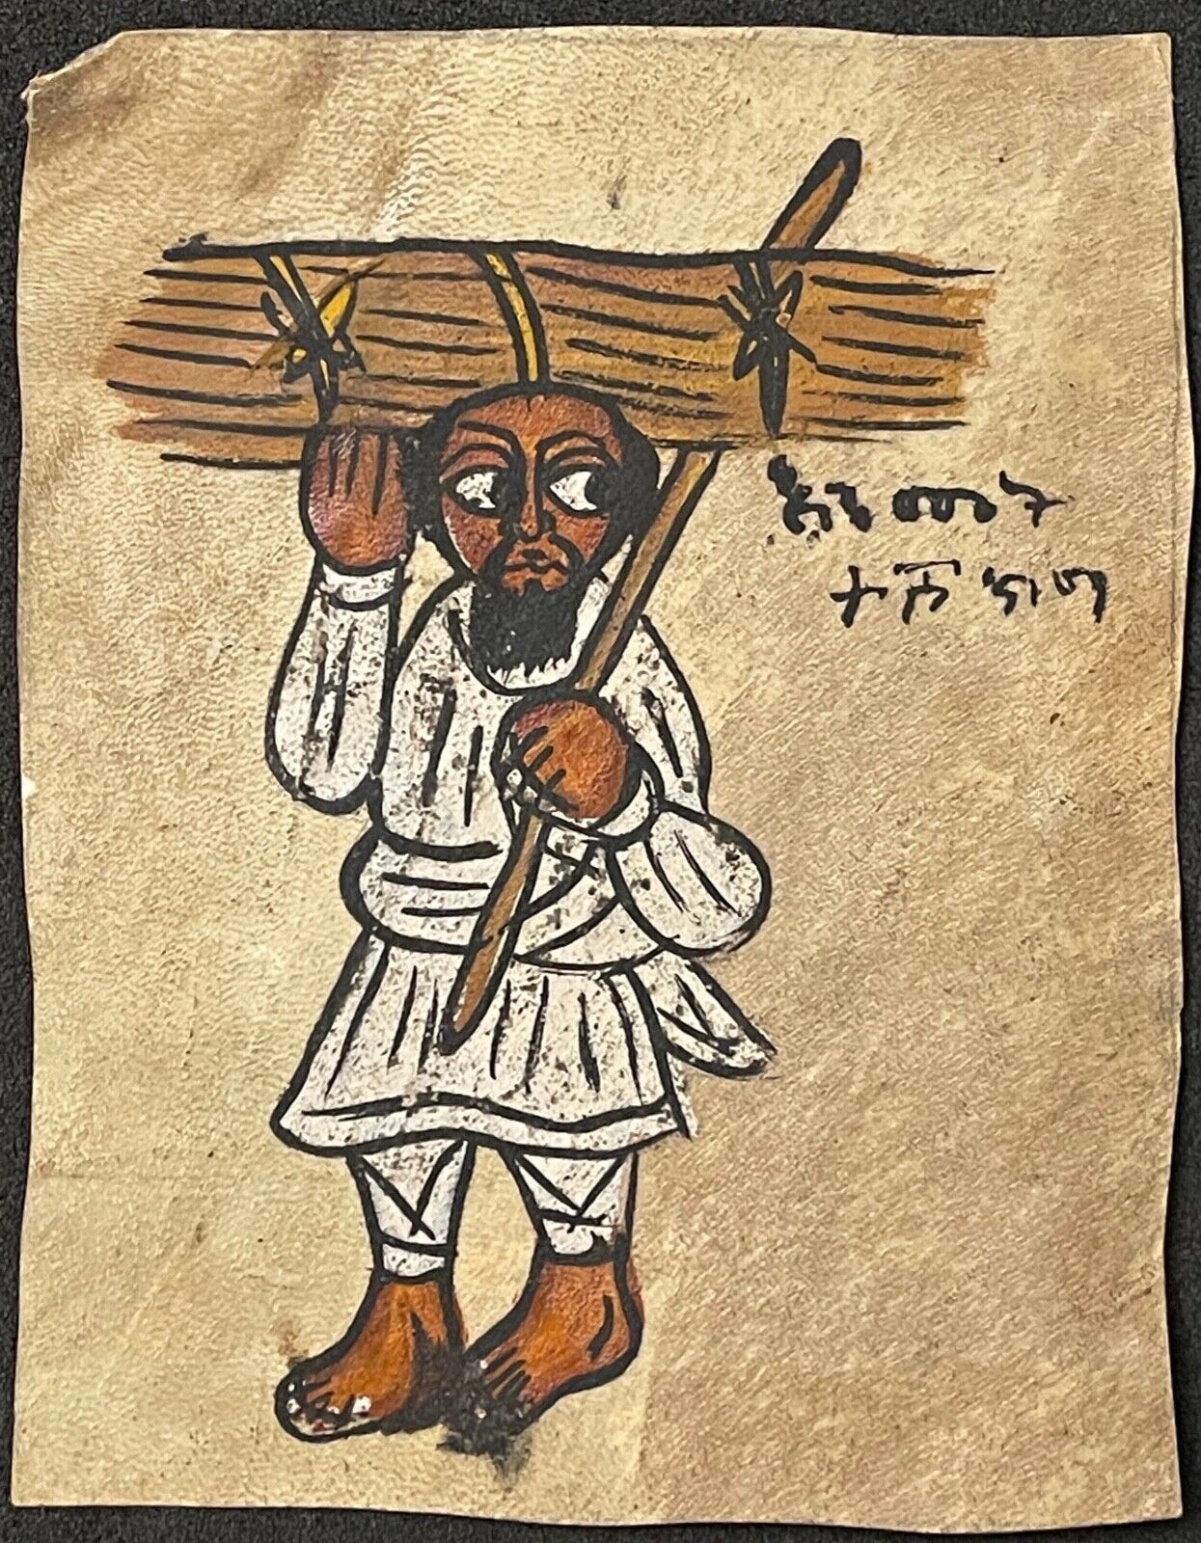 እንጨት
ተሸካሚ